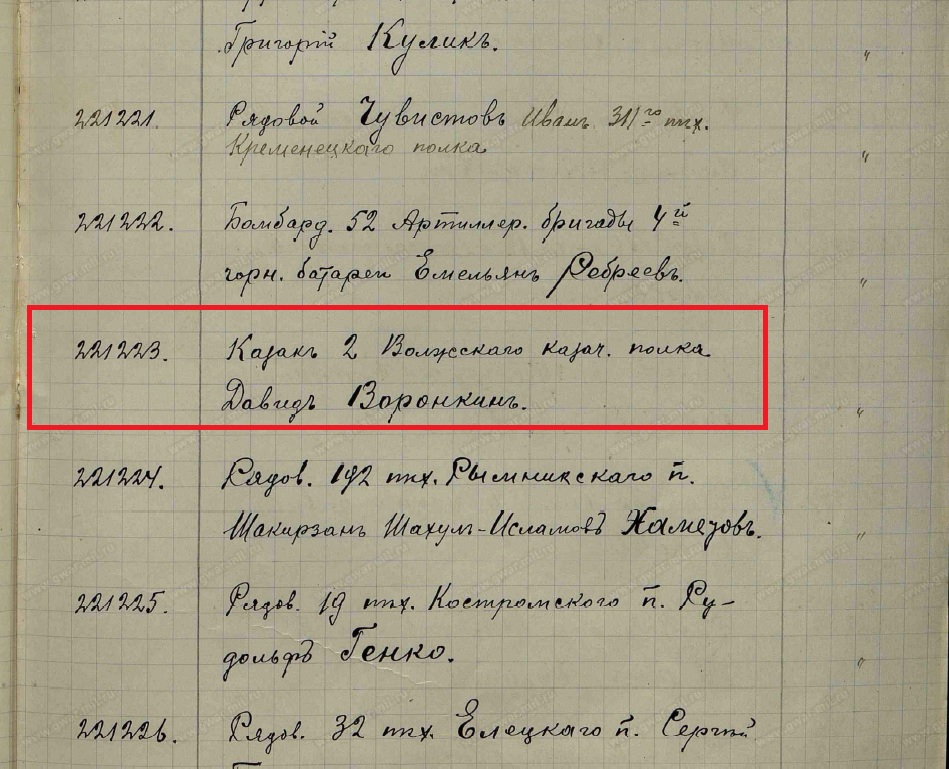 Григорій Куликъ.
"
221221. Рядовой Чувистовъ Иванъ 311го пѣх.
Кременецкаго полка "
221222. Бомбард. 52 Артиллер. бригады 4й
горн. батареи Емельянъ Ребреевъ. "
221223. Казакъ 2 Волжскаго казач. полка
Давидъ Воронкинъ. "
221224. Рядов. 192 пѣх. Рымникскаго п.
Шакирзанъ Шахул-Исламовъ Хаметовъ. "
221225. Рядов. 19 пѣх. Костромского п. Ру-
дольфъ Генко. "
221226. Рядов. 32 пѣх. Елецкаго п. Сергѣй